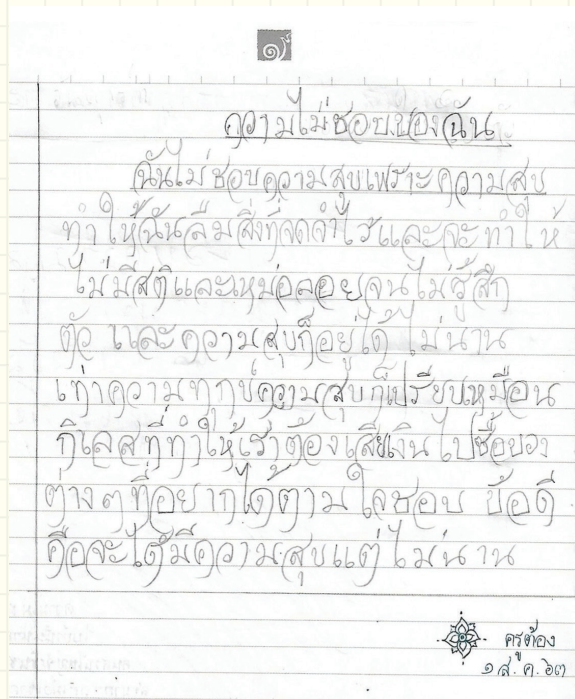 ๑
ความไม่ชอบของฉัน
ฉันไม่ชอบความสุขเพราะความสุข
ทำให้ฉันลืมสิ่งที่จดจำไว้และจะทำให้
ไม่มีสติและเหม่อลอยจนไม่รู้สึก
ตัว และความสุขก็อยู่ได้ ไม่นาน
เท่าความทุกข์ความสุขก็เปรียบเหมือน
กิเลสที่ทำให้เราต้องเสียเงินไปซื้อของ
ต่างๆที่อยากได้ตามใจชอบ ข้อดี
คือจะได้มีความสุขแต่ไม่นาน
ครูต้อง
๑ ส.ค. ๖๓